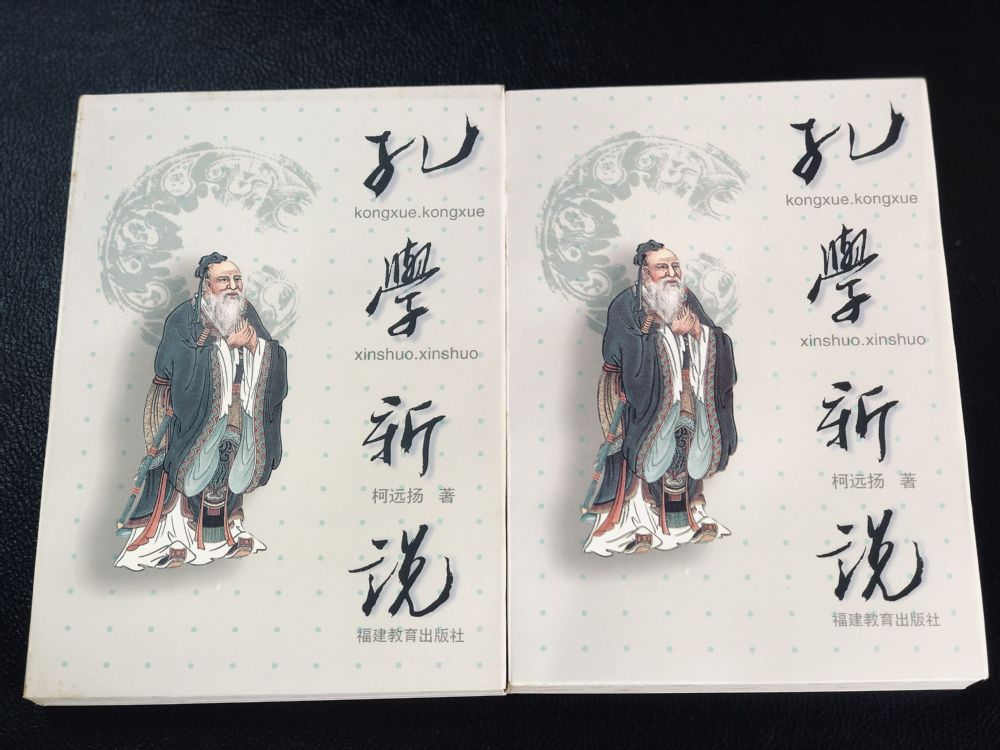 孔
kongxue.kongxue
學
xinshuo.xinshuo
新
柯远扬 著
说
福建教育出版社
孔
kongxue.kongxue
學
xinshuo.xinshuo
新
柯远扬 著
说
福建教育出版社